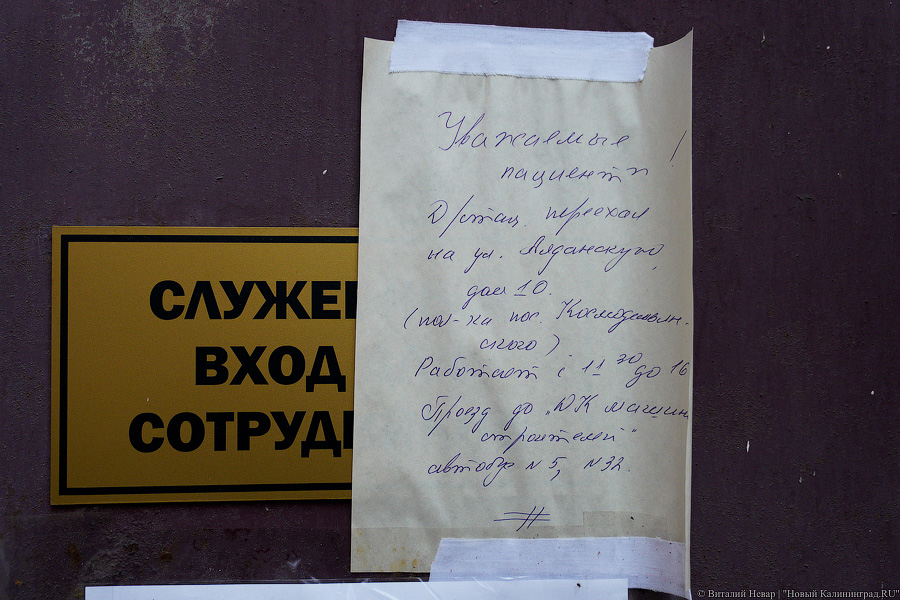 СЛУЖЕБ
ВХОД
СОТРУДН
Уважаемые
пациенты !
Д/стац. переехал
на ул. Аллданскую,
дом 10.
(пол-ка пос. Космодемьян-
ского)
Работает с 11 30 до 16
Проезд до "ДК машин
строителей"
автобус N 5, N 32.
© Виталий Невар | "Новый Калининград.RU"